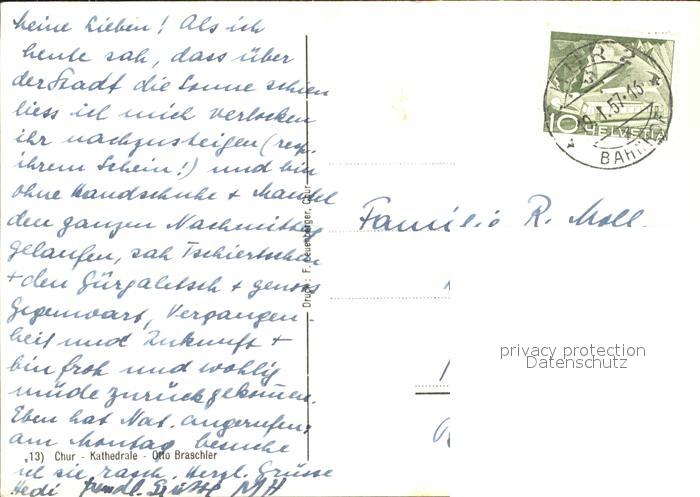 Meine Lieben! Als ich
heute sah, dass über
der Stadt die Sonne schien
liess ich mich verlocken
ihr nachzusteigen (resp.
ihrem Schein!) und bin
ohne Handschuhe + Mantel
den ganzen Nachmittag
gelaufen, sah Tschiertschen
+ den Gürgaletsch + genoss
Gegenwart, Vergangen-
heit und Zukunft +
bin froh und wohlig
müde zurückgekommen.
Eben hat Nat. angerufen;
am Montag besuche
ich sie rasch. Herzl. Grüsse
Hedi freundl. Grüsse MH
13) Chur - Kathedrale - Otto Braschler
Druck: F. Leuenberger, Chur
CHUR 2
9.I.57-15
BAHNHOF
10 HELVETIA
Familie R. Moll.
privacy protection
Datenschutz